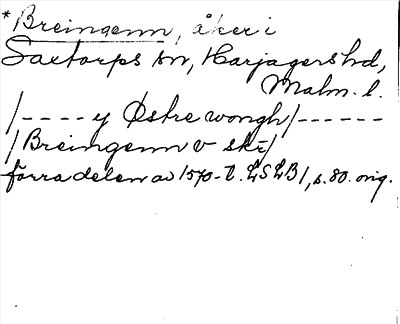 *Breingenn, åker i
Saxtorps sn, Harjagers hd,
Malm. l.
/----y Østre wongh/------
/Breingenn v skr/
förra delen av 1570-t. LSLB1, s. 80. orig.